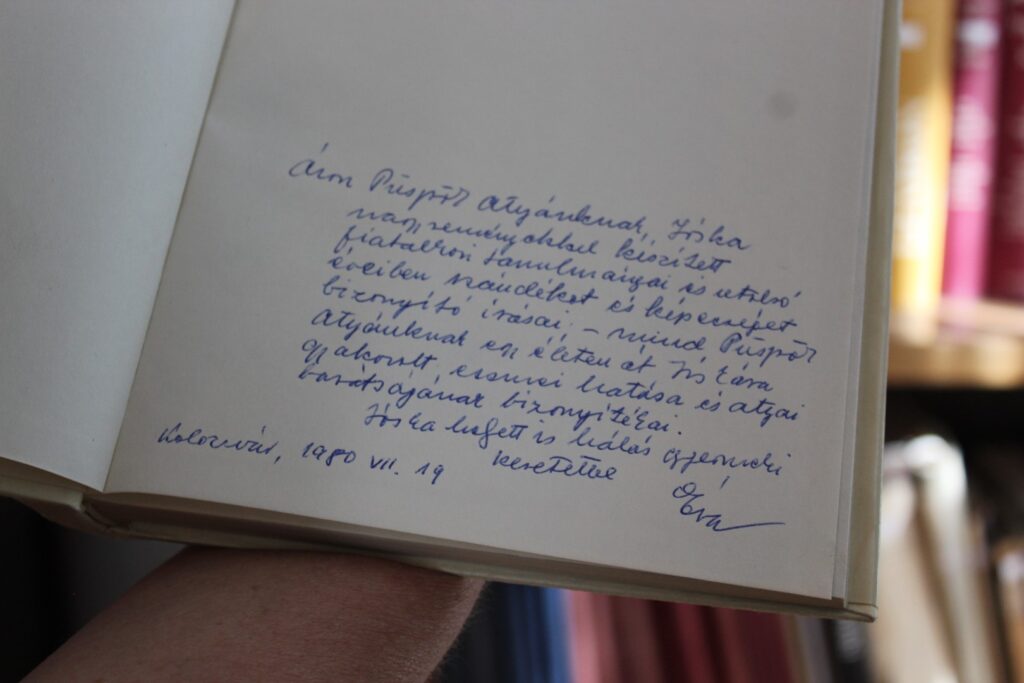 Áron Püspök Atyánknak, Jóska
nagy reményekkel készített
fiatalkori tanulmányai és utolsó
éveiben szándékot és képességet
bizonyító írásai, – mind Püspök
Atyánknak egy életen át Jóskára
gyakorolt eszmei hatása és atyai
barátságának bizonyítékai.
Jóska helyett is hálás gyermeki
szeretettel
Kolozsvár, 1980 VII. 19
Éva